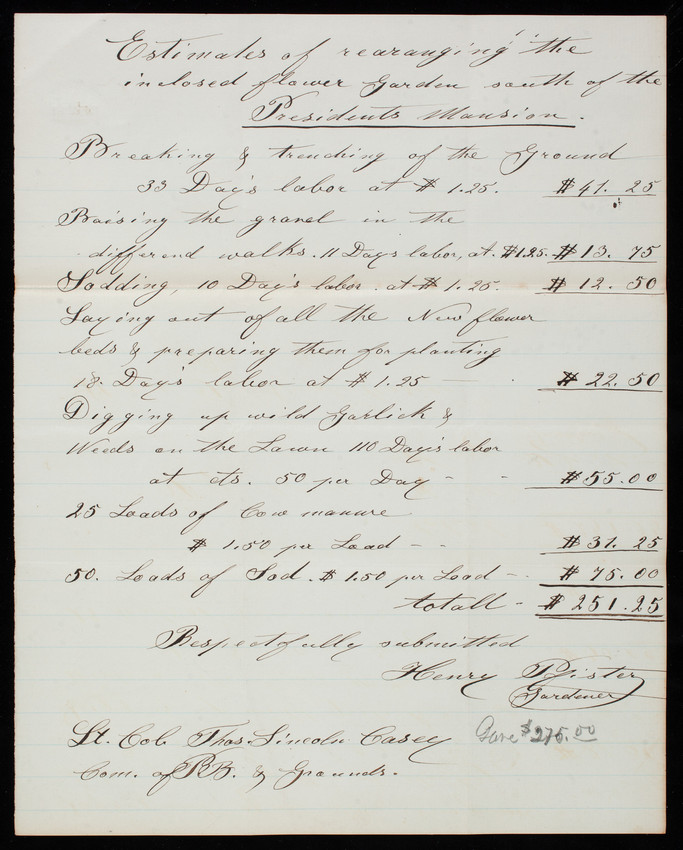 Estimates of rearanging the
inclosed flower Garden south of the
Presidents Mansion.
Breaking & trenching of the Ground
33 Day's labor at $ 1.25. $ 41. 25
Raising the gravel in the
differend walks. 11 Days labor, at $1.25. $ 13. 75
Sodding, 10 Day's labor. at $ 1.25. $ 12. 50
Laying out of all the New flower
beds & preparing them for planting
18. Day's labor at $ 1.25 — $ 22. 50
Digging up wild Garlick &
Weeds on the Lawn 110 Day's labor
at cts. 50 per Day - - $ 55.00
25 Loads of Cow manure
$ 1.50 per Load - - $ 31. 25
50. Loads of Sod. $ 1.50 per Load - - $ 75. 00
totall - $ 251.25
Respectfully submitted
Henry Pfister
Gardener
Lt. Col. Thos. Lincoln Casey Gave $275.00
Com. of PB. & Grounds.